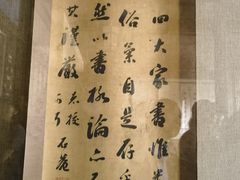 四大家書惟米
俗氣自是存
然以書格論亦不
其謹嚴
石菴